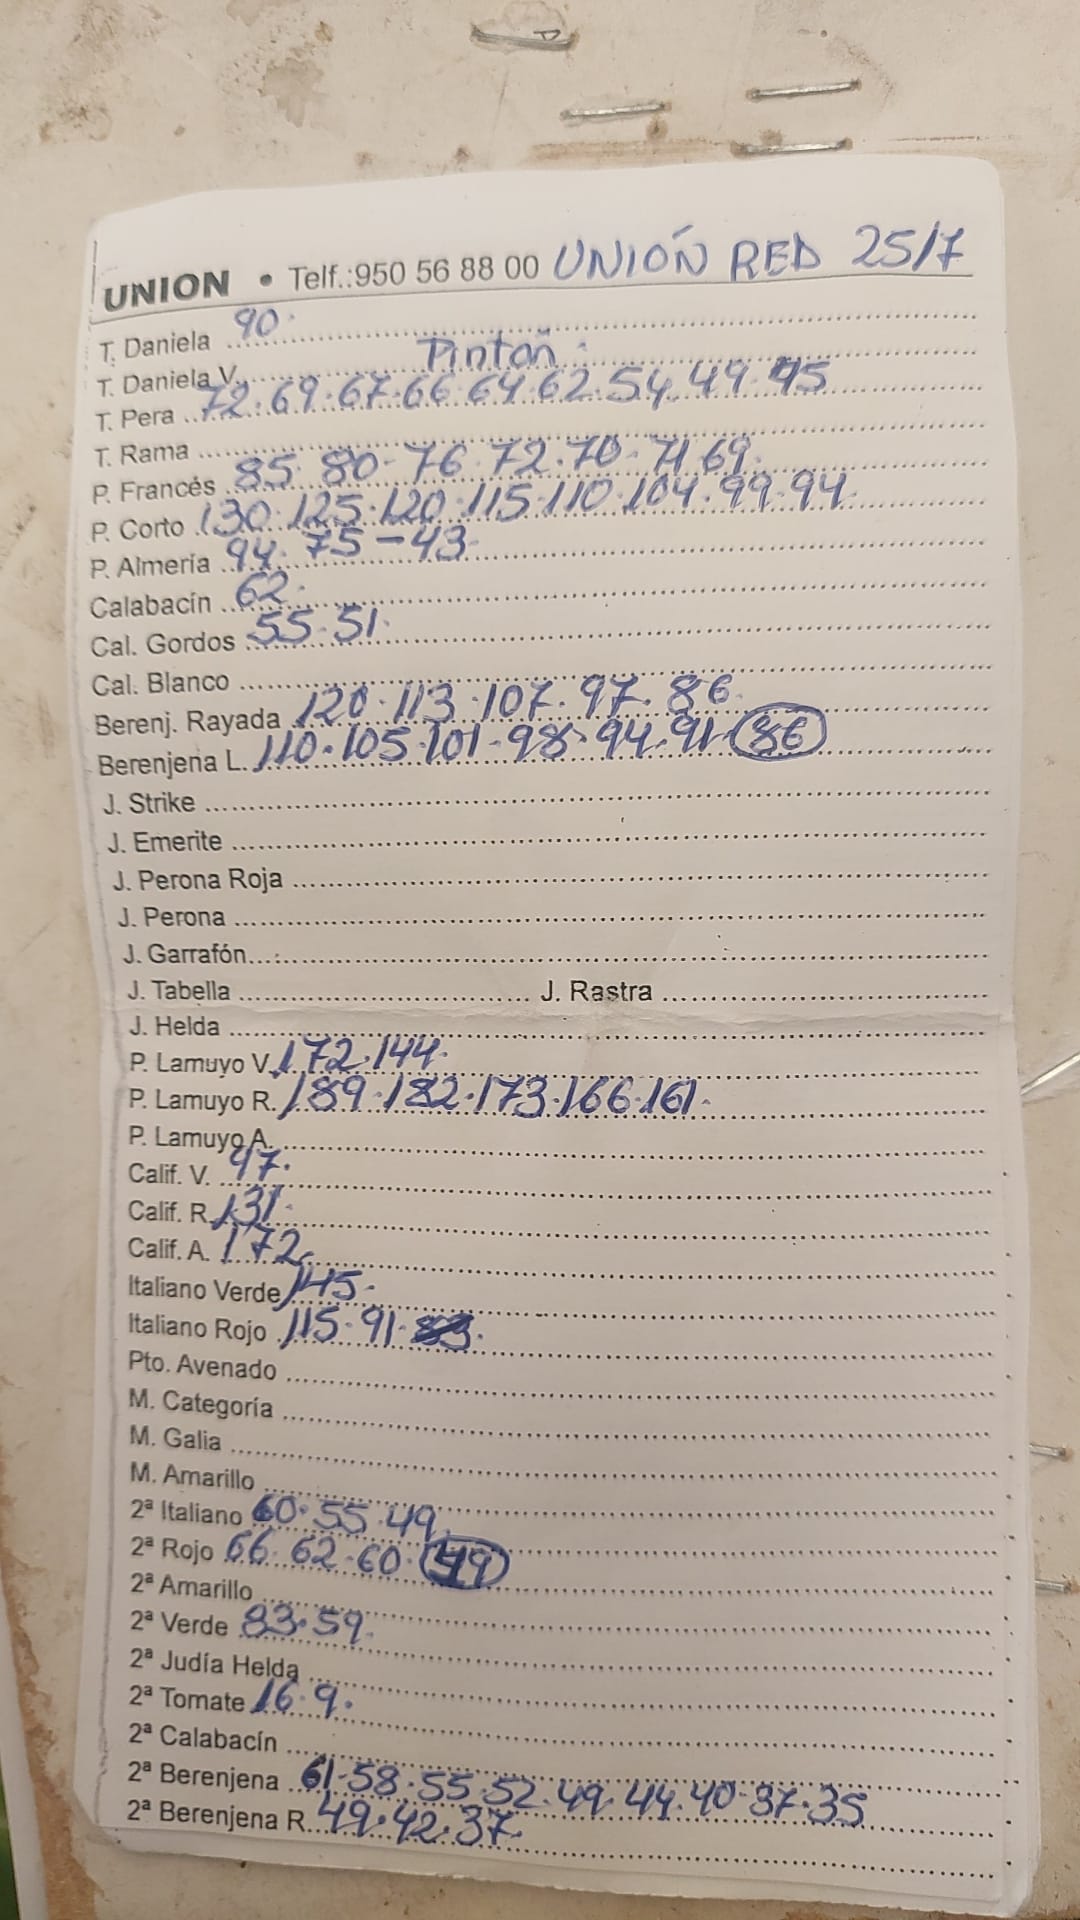 UNION • Telf.:950 56 88 00 UNIÓN RED 25/7
T. Daniela 90.
T. Daniela V. Pintañ.
T. Pera 72.69.67.66.64.62.54.49.45
T. Rama
P. Francés 85.80-76.72.70.71 69.
P. Corto 130.125.120.115.110.104.99.94.
P. Almería 94.75-43.
Calabacín 62.
Cal. Gordos 55.51.
Cal. Blanco
Berenj. Rayada 120.113.107.97.86.
Berenjena L. 110.105.101.98.94.91.86
J. Strike
J. Emerite
J. Perona Roja
J. Perona
J. Garrafón
J. Tabella J. Rastra
J. Helda
P. Lamuyo V. 172.144.
P. Lamuyo R. 189.182.173.166.161.
P. Lamuyo A.
Calif. V. 47.
Calif. R. 131.
Calif. A. 172.
Italiano Verde 145.
Italiano Rojo 115.91.
Pto. Avenado
M. Categoría
M. Galia
M. Amarillo
2ª Italiano 60.55.49.
2ª Rojo 66.62.60.49
2ª Amarillo
2ª Verde 83.59.
2ª Judía Helda
2ª Tomate 16.9.
2ª Calabacín
2ª Berenjena 61.58.55.52.49.44.40.37.35
2ª Berenjena R. 49.42.37.